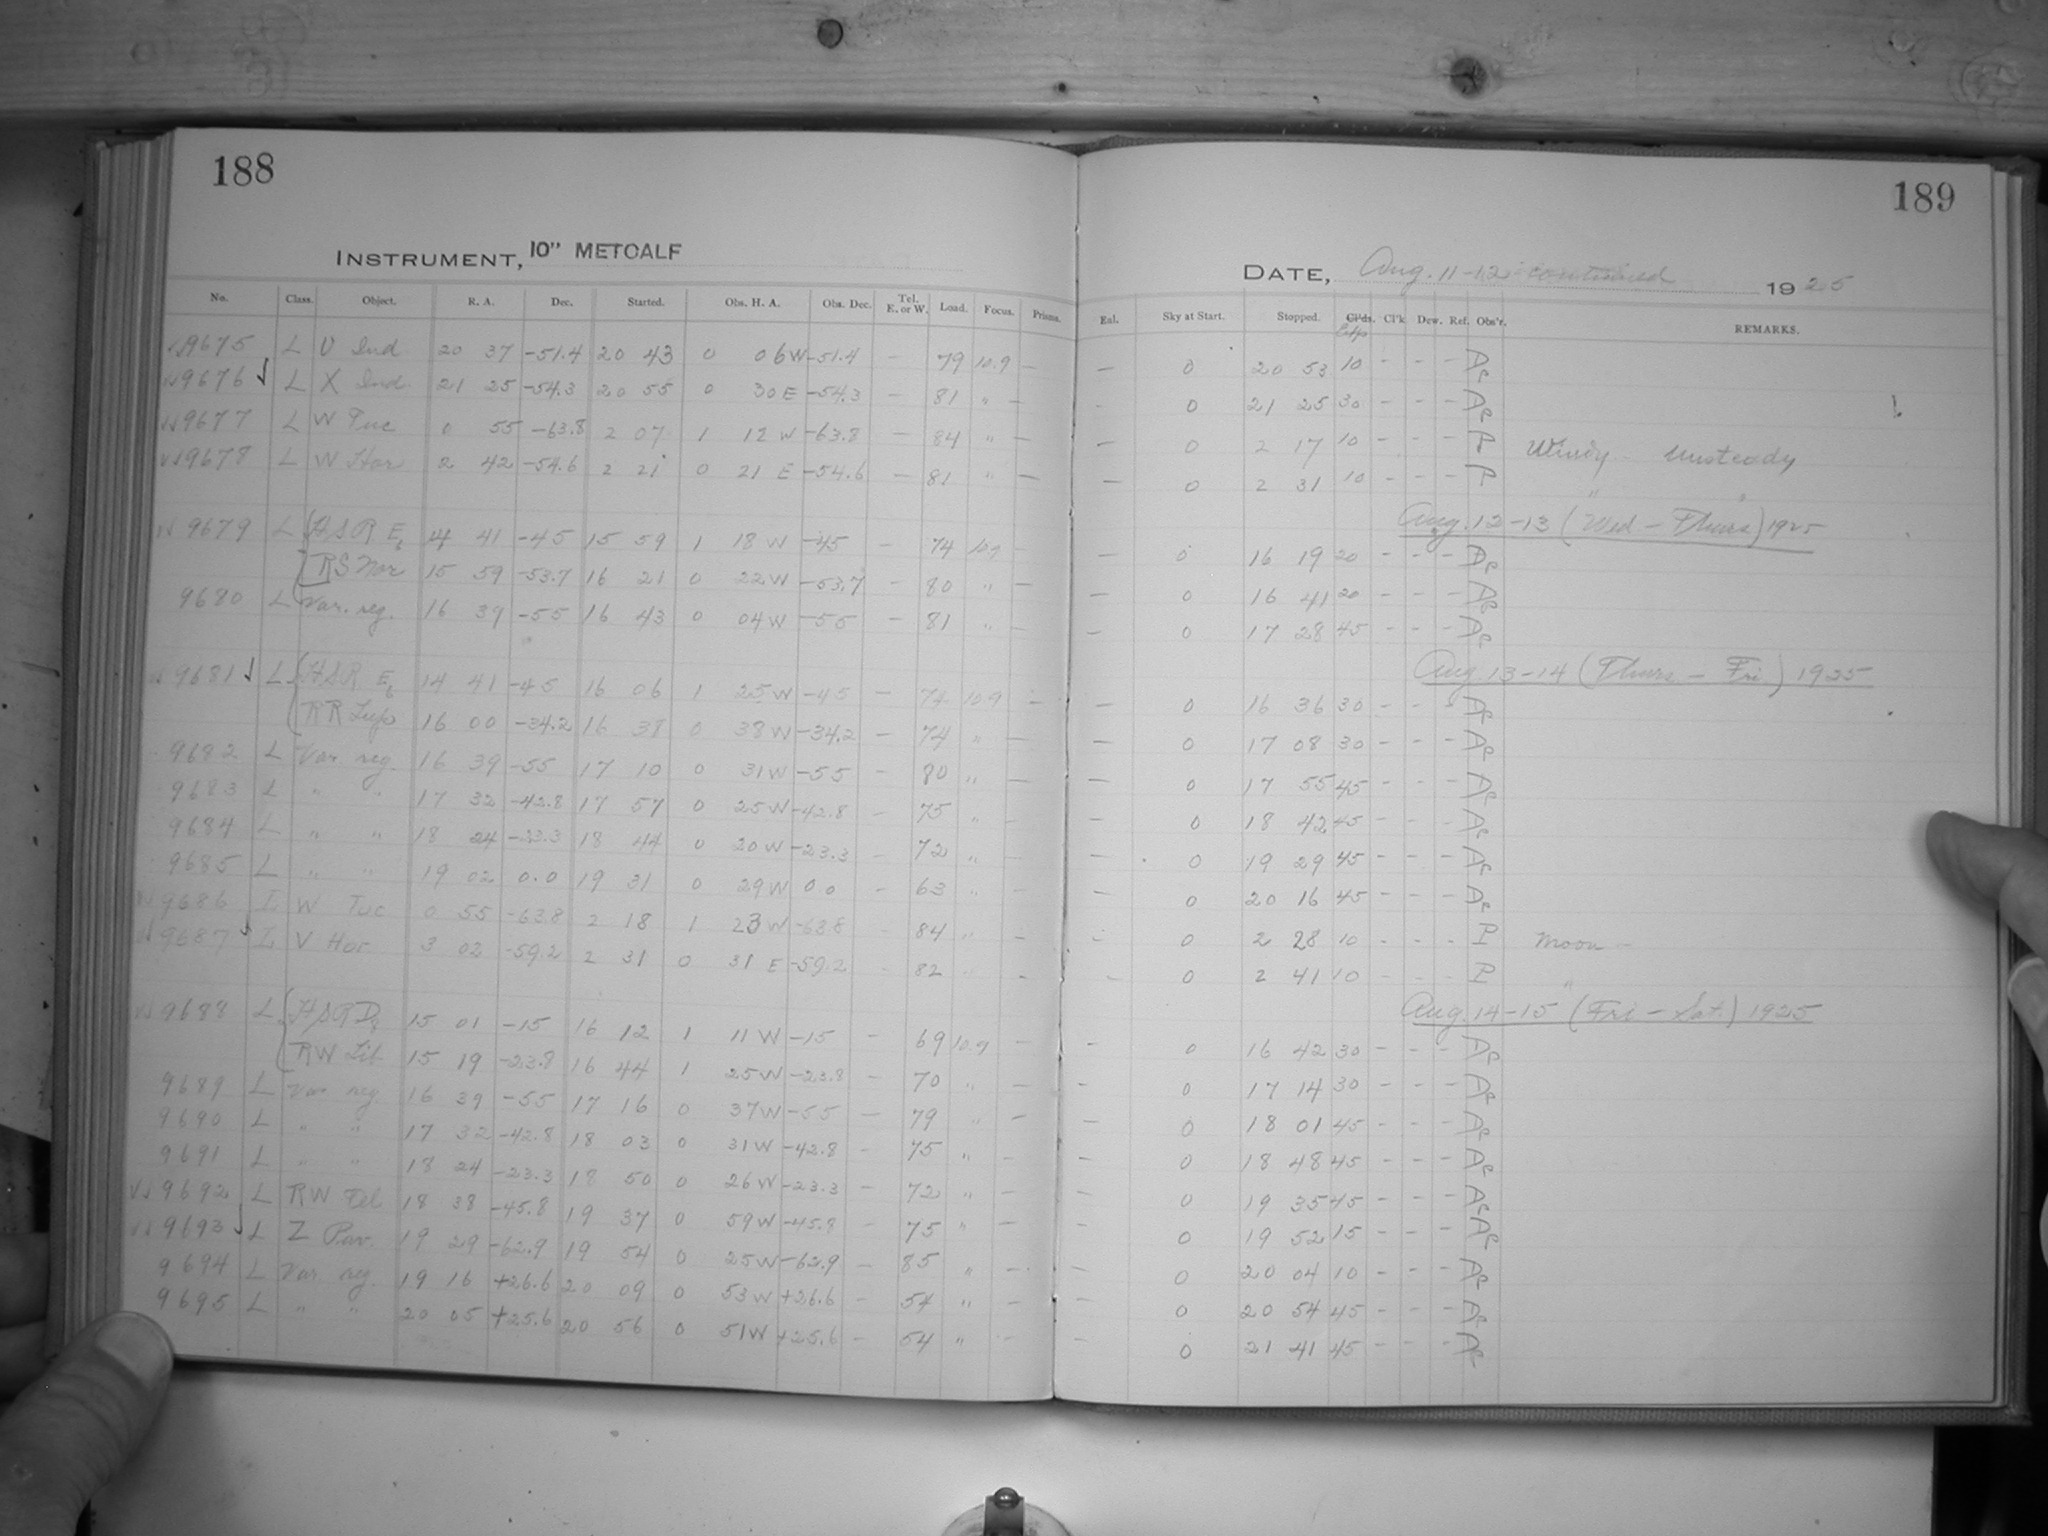 188
189
INSTRUMENT, 10" METCALF
DATE, Aug. 11-12 continued 1925
No. Class. Object. R. A. Dec. Started. Obs. H. A. Obs. Dec. Tel. E. or W. Load. Focus. Prisms. Eal. Sky at Start. Stopped. Cl'ds. Exp Cl'k Dew. Ref. Obs'r. REMARKS.
9675 L U Ind 20 37 -51.4 20 43 0 06 W -51.4 - 79 10.9 - - 0 20 53 10 - - -
9676 √ L X Ind. 21 25 -54.3 20 55 0 30 E -54.3 - 81 " - - 0 21 25 30 - - -
9677 L W Tuc 0 55 -63.8 2 07 1 12 W -63.8 - 84 " - - 0 2 17 10 - - - Windy - Unsteady
9678 L W Hor 2 42 -54.6 2 21 0 21 E -54.6 - 81 " - - 0 2 31 10 - - - " "
Aug. 12-13 (Wed - Thurs) 1925
9679 L HSR E6 14 41 -45 15 59 1 18 W -45 - 74 10.9 - - 0 16 19 20 - - -
RS Nor 15 59 -53.7 16 21 0 22 W -53.7 - 80 " - - 0 16 41 20 - - -
9680 L Var. reg. 16 39 -55 16 43 0 04 W -55 - 81 " - - 0 17 28 45 - - -
Aug 13-14 (Thurs - Fri.) 1925
9681 √ L HSR E6 14 41 -45 16 06 1 25 W -45 - 74 10.9 - - 0 16 36 30 - - -
RR Lup 16 00 -34.2 16 38 0 38 W -34.2 - 74 " - - 0 17 08 30 - - -
9682 L Var reg. 16 39 -55 17 10 0 31 W -55 - 80 " - - 0 17 55 45 - - -
9683 L " " 17 32 -42.8 17 57 0 25 W -42.8 - 75 " - - 0 18 42 45 - - -
9684 L " " 18 24 -23.3 18 44 0 20 W -23.3 - 72 " - - 0 19 29 45 - - -
9685 L " " 19 02 0.0 19 31 0 29 W 0 0 - 63 " - - 0 20 16 45 - - -
9686 I W Tuc 0 55 -63.8 2 18 1 23 W -63.8 84 " - - 0 2 28 10 - - - Moon -
9687 √ I V Hor 3 02 -59.2 2 31 0 31 E -59.2 82 - - 0 2 41 10 - - - "
Aug. 14-15 (Fri - Sat.) 1925
9688 L HSR D 15 01 -15 16 12 1 11 W -15 - 69 10.9 - - 0 16 42 30 - - -
RW Lib. 15 19 -23.8 16 44 1 25 W -23.8 - 70 " - - 0 17 14 30 - - -
9689 L Var reg 16 39 -55 17 16 0 37 W -55 - 79 " - - 0 18 01 45 - - -
9690 L " " 17 32 -42.8 18 03 0 31 W -42.8 - 75 " - - 0 18 48 45 - - -
9691 L " " 18 24 -23.3 18 50 0 26 W -23.3 - 72 " - - 0 19 35 45 - - -
9692 L RW Tel 18 38 -45.8 19 37 0 59 W -45.8 - 75 " - - 0 19 52 15 - - -
9693 √ L Z Pav. 19 29 -62.9 19 54 0 25 W -62.9 - 85 " - - 0 20 04 10 - - -
9694 L Var reg. 19 16 +26.6 20 09 0 53 W +26.6 - 54 " - - 0 20 54 45 - - -
9695 L " " 20 05 +25.6 20 56 0 51 W +25.6 - 54 " - - 0 21 41 45 - - -